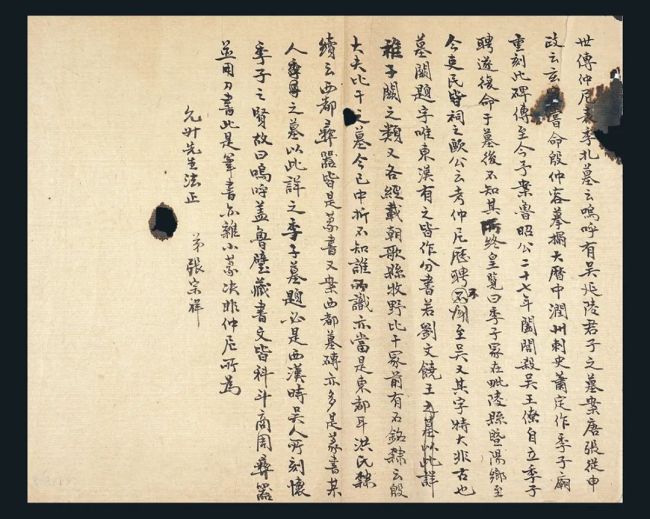 世傳仲尼表季札墓云嗚呼有吳延陵君子之墓案唐張從申
政云玄 命殷仲容摹搨大曆中潤州刺史蕭定作季子廟
重刻此碑傳至今予案魯昭公二十七年闔閭殺吳王僚自立季子至
聘遂復命于墓後不知其所終皇覽曰季子冢在毗陵縣暨陽鄉至
今吏民皆祠之歐公云考仲尼歷聘不聞至吳又其字特大非古也
墓闕題字唯東漢有之皆作分書若劉文饒王
稚子闕之類又吾經載朝歌縣牧野比干冢前有石銘隸云殷
大夫比干之墓今已中折不知誰所識亦當是東都耳洪氏隸
續云西都彝器皆是篆書又案西都墓磚亦多是篆書某
人 之墓以此詳之季子墓題必是西漢時吳人所刻懷
季子之賢故曰嗚呼蓋魯壁藏書文皆科斗商周彝器
並用刀書此是筆書亦雜小篆決非仲尼所為
允叔先生法正
弟張宗祥